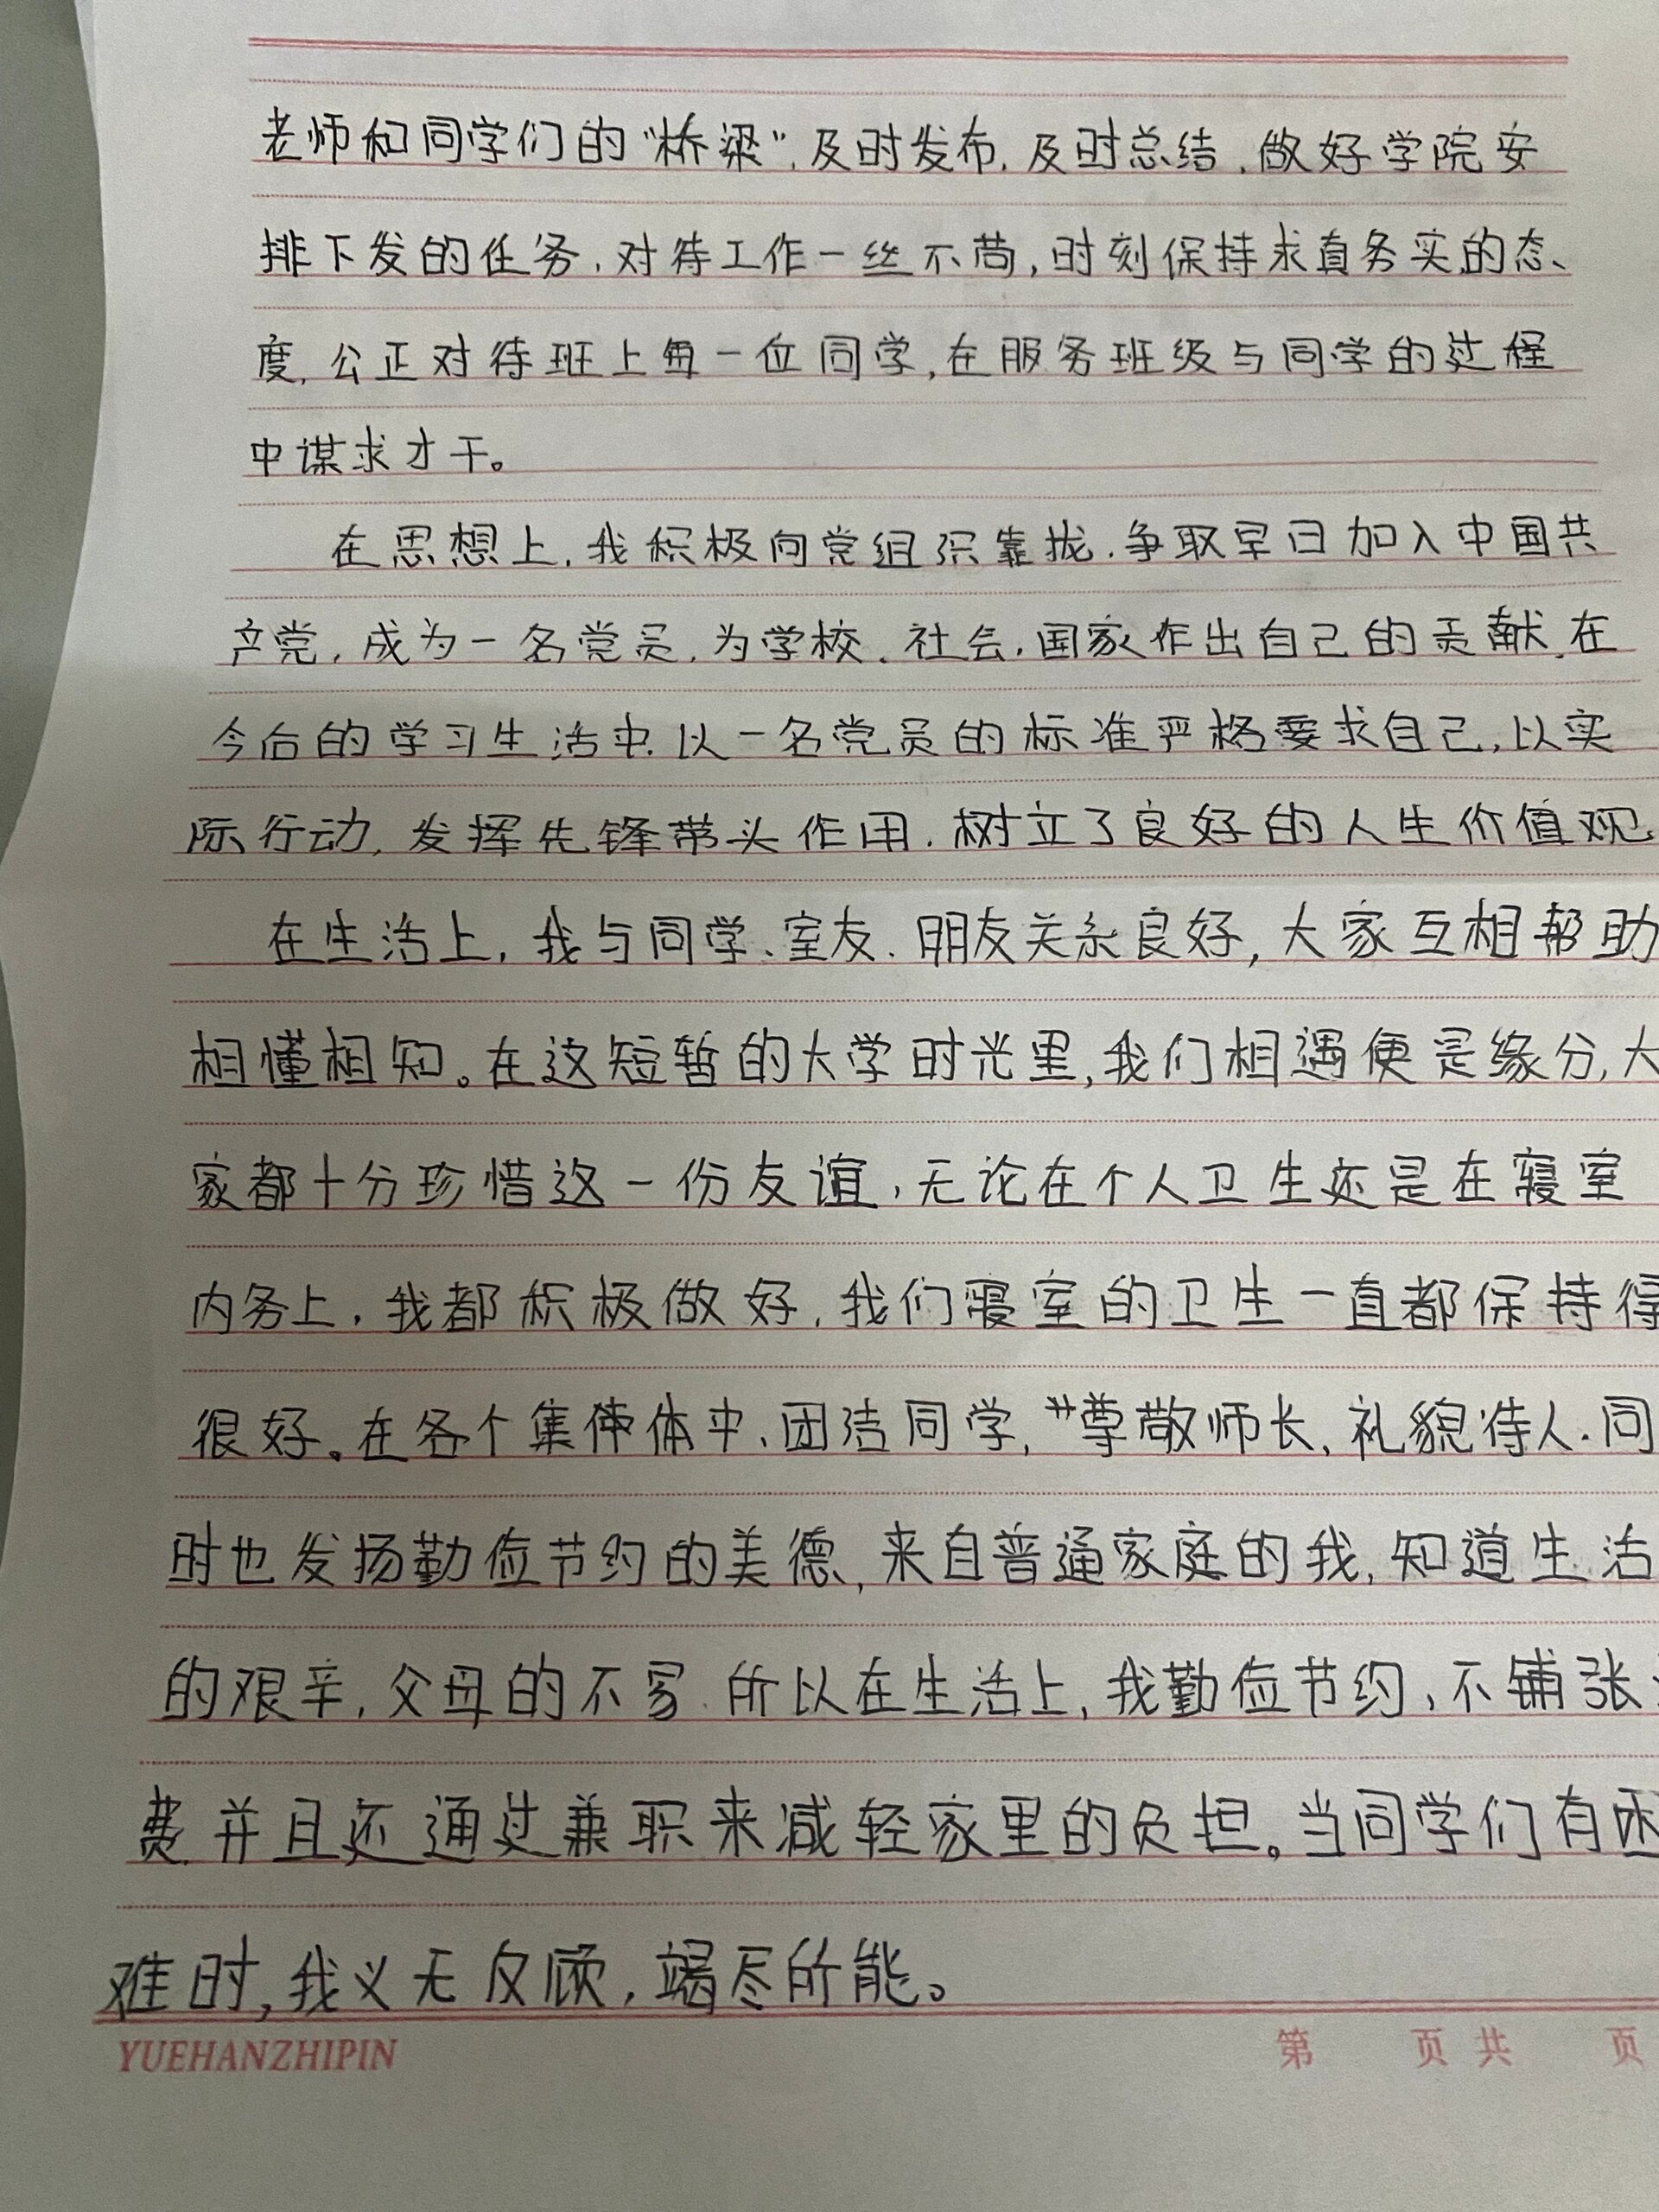 老师和同学们的“桥梁”,及时发布,及时总结,做好学院安
排下发的任务,对待工作一丝不苟,时刻保持求真务实的态
度,公正对待班上每一位同学,在服务班级与同学的过程
中谋求才干。
在思想上,我积极向党组织靠拢,争取早日加入中国共
产党,成为一名党员,为学校、社会、国家作出自己的贡献,在
今后的学习生活中,以一名党员的标准严格要求自己,以实
际行动,发挥先锋带头作用,树立了良好的人生价值观
在生活上,我与同学、室友、朋友关系良好,大家互相帮助
相懂相知。在这短暂的大学时光里,我们相遇便是缘分,大
家都十分珍惜这一份友谊,无论在个人卫生还是在寝室
内务上,我都积极做好,我们寝室的卫生一直都保持得
很好。在各个集体中、团洁同学,尊敬师长,礼貌待人.同
时也发扬勤俭节约的美德,来自普通家庭的我,知道生活
的艰辛,父母的不易.所以在生活上,我勤俭节约,不铺张
费,并且还通过兼职来减轻家里的负担。当同学们有困
难时,我义无反顾,竭尽所能。
YUEHANZHIPIN
第 页 共 页